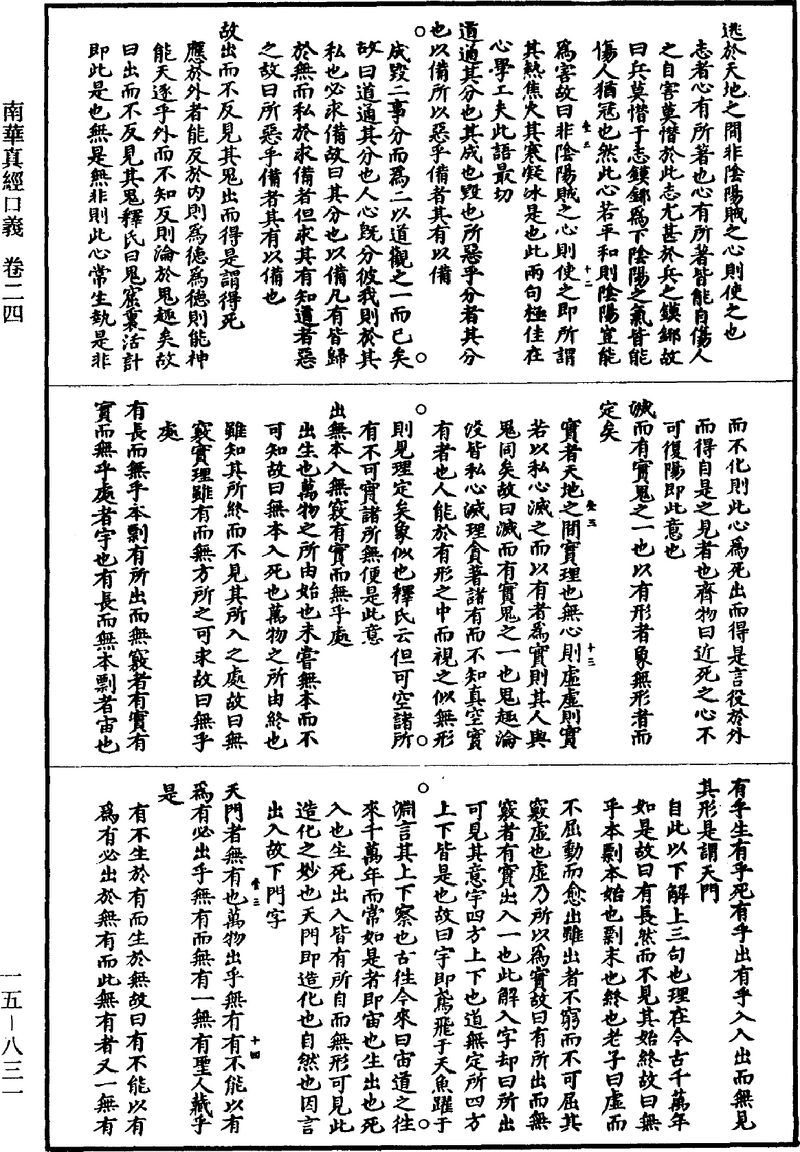 南華真經口義 卷二四
逃於天地之間非陰陽賊之心則使之也
志者心有所著也心有所著皆能自傷人
之自害莫憯於此志尤甚於兵之鏌鎁故
曰兵莫憯于志鏌鎁爲下陰陽之氣皆能
傷人猶寇也然此心若平和則陰陽豈能
爲害故曰非陰陽賊之心則使之即所謂
其熱焦火其寒凝冰是也此兩句極佳在
心學工夫此語最切
道通其分也其成也毀也所惡乎分者其分
也以備所以惡乎備者其有以備
成毀二事分而爲二以道觀之一而已矣
故曰道通其分也人心既分彼我則於其
私也必求備故曰其分也以備凡有皆歸
於無而私於求備者但求其有知道者惡
之故曰所惡乎備者其有以備也
故出而不反見其鬼出而得是謂得死
應於外者能反於內則爲德爲德則能神
能天逐乎外而不知反則淪於鬼趣矣故
曰出而不反見其鬼釋氏曰鬼窟裏活計
即此是也無是無非則此心常生執是非
而不化則此心爲死出而得是言役於外
而得自是之見者也齊物曰近死之心不
可復陽即此意也
滅而有實鬼之一也以有形者象無形者而
定矣
實者天地之間實理也無心則虛虛則實
若以私心滅之而以有者爲實則其人與
鬼同矣故曰滅而有實鬼之一也鬼趣淪
沒皆私心滅理貪著諸有而不知真空實
有者也人能於有形之中而視之似無形
則見理定矣象似也釋氏云但可空諸所
有不可實諸所無便是此意
出無本入無竅有實而無乎處
出生也萬物之所由始也未嘗無本而不
可知故曰無本入死也萬物之所由終也
雖知其所終而不見其所入之處故曰無
竅實理雖有而無方所之可求故曰無乎
處
有長而無乎本剽有所出而無竅者有實有
實而無乎處者宇也有長而無本剽者宙也
有乎生有乎死有乎出有乎入入出而無見
其形是謂天門
自此以下解上三句也理在今古千萬年
如是故曰有長然而不見其始終故曰無
乎本剽本始也剽末也終也老子曰虛而
不屈動而愈出雖出者不窮而不可屈其
竅虛也虛乃所以爲實故曰有所出而無
竅者有實出入一也此解入字却曰所出
可見其意宇四方上下也道無定所四方
上下皆是也故曰宇即鳶飛于天魚躍于
淵言其上下察也古往今來曰宙道之往
來千萬年而常如是者即宙也生出也死
入也生死出入皆有所自而無形可見此
造化之妙也天門即造化也自然也因言
出入故下門字
天門者無有也萬物出乎無有有不能以有
爲有必出乎無有而無有一無有聖人藏乎
是
有不生於有而生於無故曰有不能以有
爲有必出於無有而此無有者又一無有
一五—八三一